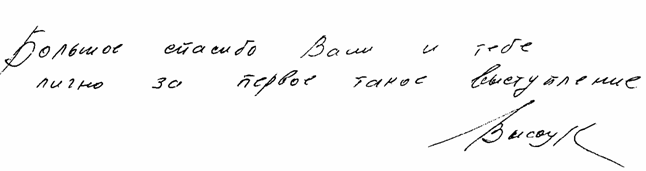 Большое спасибо Вам и тебе
лично за первое такое выступление
Высоц